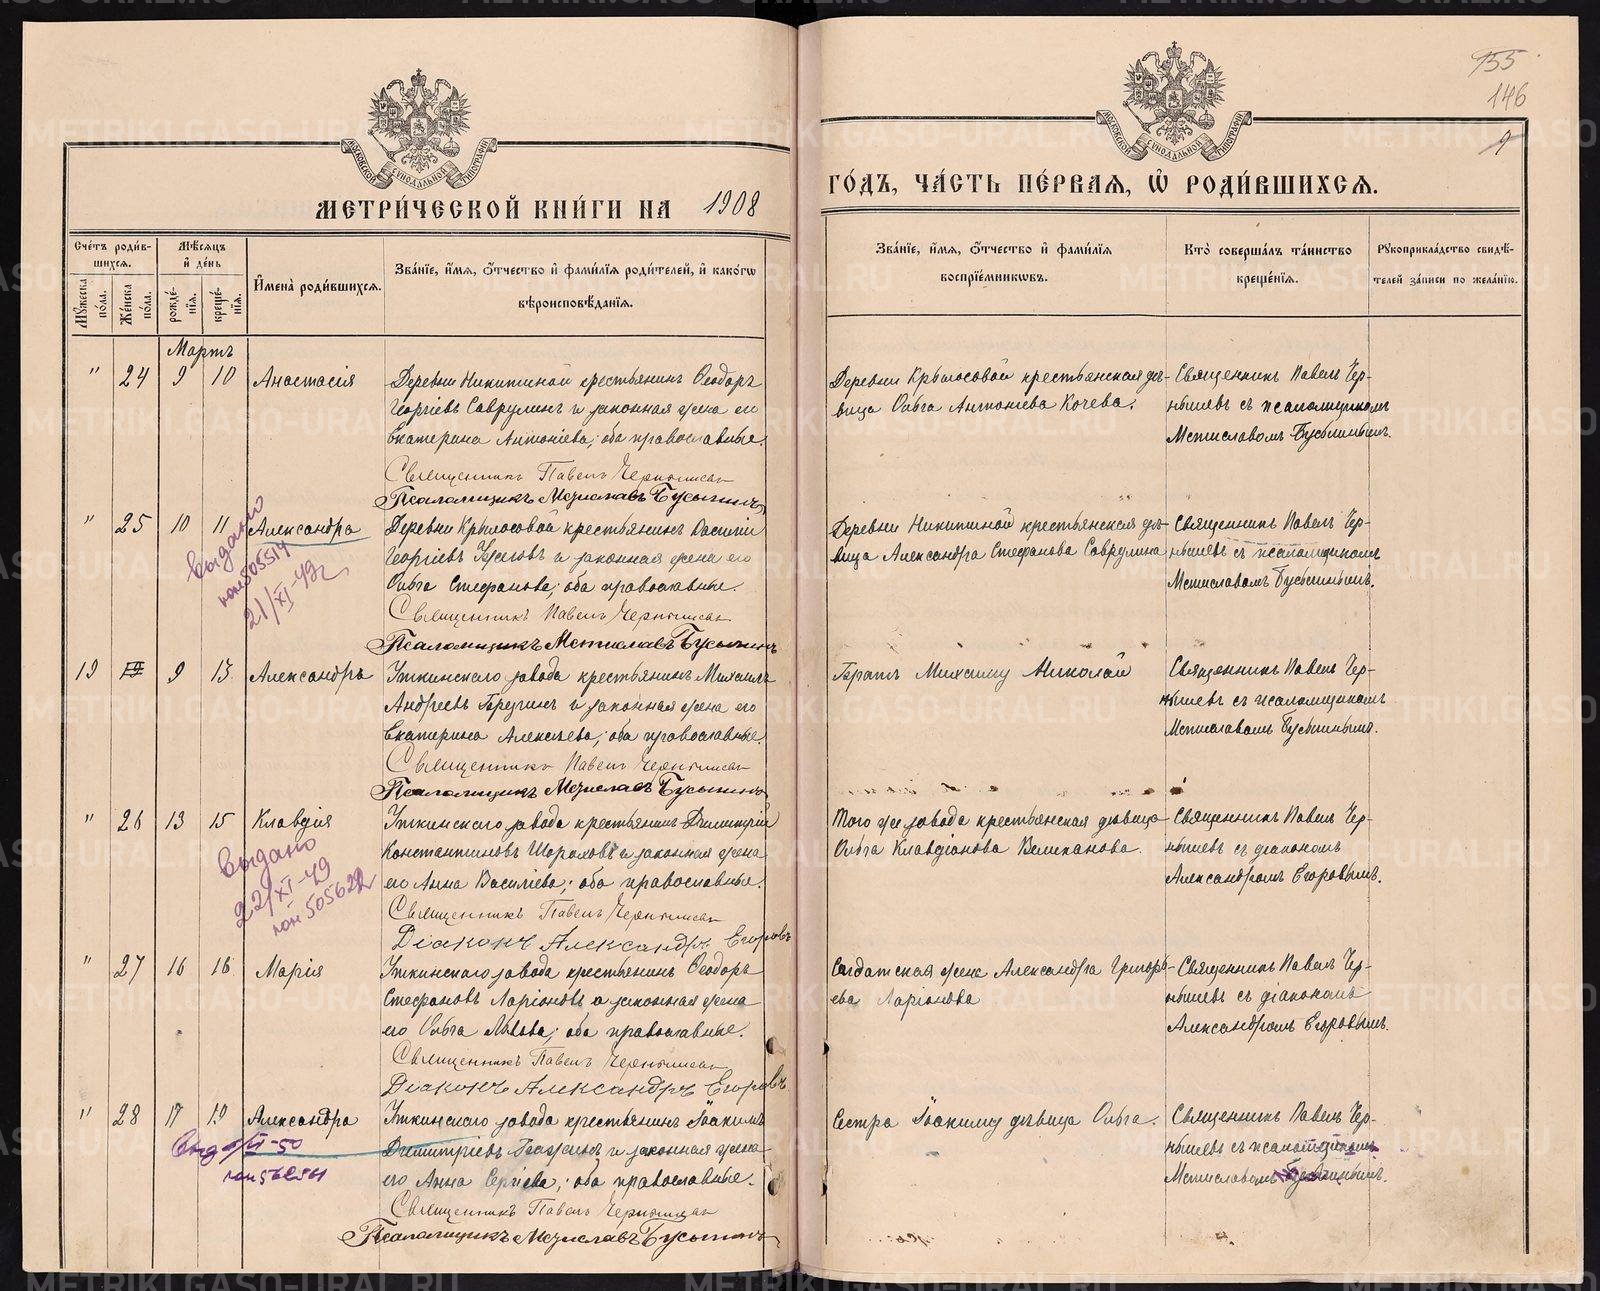 155
146
9
МОСКОВСКОЙ СѴНОДАЛЬНОЙ ТИПОГРАФІИ
МОСКОВСКОЙ СѴНОДАЛЬНОЙ ТИПОГРАФІИ
МЕТРИ́ЧЕСКОЙ КНИ́ГИ НА 1908
ГО́ДЪ, ЧА́СТЬ ПЕ́РВАЯ, Ѡ҆ РОДИ́ВШИХСЯ.
Сче́тъ роди́в-
шихся.
Мꙋжеска по́ла.
Же́нска по́ла.
Мѣ́сяцъ
и҆ де́нь
рожде́-
нїя.
креще́-
нїя.
И҆мена̀ роди́вшихся.
Зва́нїе, и҆́мя, ѻ҆́тчество и҆ фами́лїя роди́телей, и҆ како́гѡ
вѣроисповѣ́данїя.
Зва́нїе, и҆́мя, ѻ҆́тчество и҆ фами́лїя
воспрїе́мникѡвъ.
Кто̀ соверша́лъ та́инство
креще́нїя.
Рꙋкоприкла́дство свидѣ́-
телей за́писи по жела́нїю.
Мартъ
" 24 9 10 Анастасія
Деревни Никитиной крестьянинъ Ѳеодоръ
Георгіевъ Саврулинъ и законная жена его
Екатерина Антоніева; оба православные.
Священникъ Павелъ Чернышевъ
Псаломщикъ Мстиславъ Бусыгинъ
Деревни Крылосовой крестьянская дѣ-
вица Ольга Антоніева Кочева.
Священникъ Павелъ Чер-
нышевъ съ псаломщикомъ
Мстиславомъ Бусыгинымъ.
" 25 10 11 Александра
Выдано
505514
21/XI-49г
Деревни Крылосовой крестьянинъ Василій
Георгіевъ и законная жена его
Ольга Стефанова; оба православные.
Священникъ Павелъ Чернышевъ
Псаломщикъ Мстиславъ Бусыгинъ
Деревни Никитиной крестьянская дѣ-
вица Александра Стефанова Саврулина
Священникъ Павелъ Чер-
нышевъ съ псаломщикомъ
Мстиславомъ Бусыгинымъ.
19 9 13 Александръ
Уткинскаго завода крестьянинъ Михаилъ
Андреевъ и законная жена его
Екатерина Алексѣева; оба православные.
Священникъ Павелъ Чернышевъ
Псаломщикъ Мстиславъ Бусыгинъ
Братъ Михаилу Николай
Священникъ Павелъ Чер-
нышевъ съ псаломщикомъ
Мстиславомъ Бусыгинымъ.
" 26 13 15 Клавдія
Выдано
22/XI-49
505622
Уткинскаго завода крестьянинъ Димитрій
Константиновъ Шороховъ и законная жена
его Анна Василіева; оба православные.
Священникъ Павелъ Чернышевъ
Діаконъ Александръ Егоровъ
Того же завода крестьянская дѣвица
Ольга Клавдіанова Великанова.
Священникъ Павелъ Чер-
нышевъ съ діакономъ
Александромъ Егоровымъ.
" 27 16 16 Марія
Уткинскаго завода крестьянинъ Ѳеодоръ
Стефановъ Ларіоновъ и законная жена
его Ольга Львова; оба православные.
Священникъ Павелъ Чернышевъ
Діаконъ Александръ Егоровъ
Солдатская жена Александра Григорь-
ева Ларіонова
Священникъ Павелъ Чер-
нышевъ съ діакономъ
Александромъ Егоровымъ.
" 28 17 19 Александра
Уткинскаго завода крестьянинъ Іоакимъ
Димитріевъ и законная жена
его Анна Сергіева; оба православные.
Священникъ Павелъ Чернышевъ
Псаломщикъ Мстиславъ Бусыгинъ
Сестра Іоакиму дѣвица Ольга.
Священникъ Павелъ Чер-
нышевъ съ псаломщикомъ
Мстиславомъ Бусыгинымъ.
METRIKI.GASO-URAL.RU